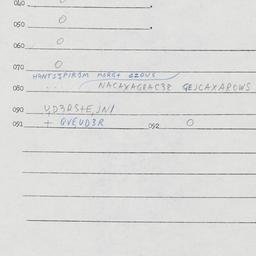 040
050 0
060 0
070 0
HANTSZPIRSM MORE+ OZOWS
080 NACAXAGRAC38 GEJCAXAROWS
090 V,D3RS+E,JN/
091 + QVEUD3R 092 0